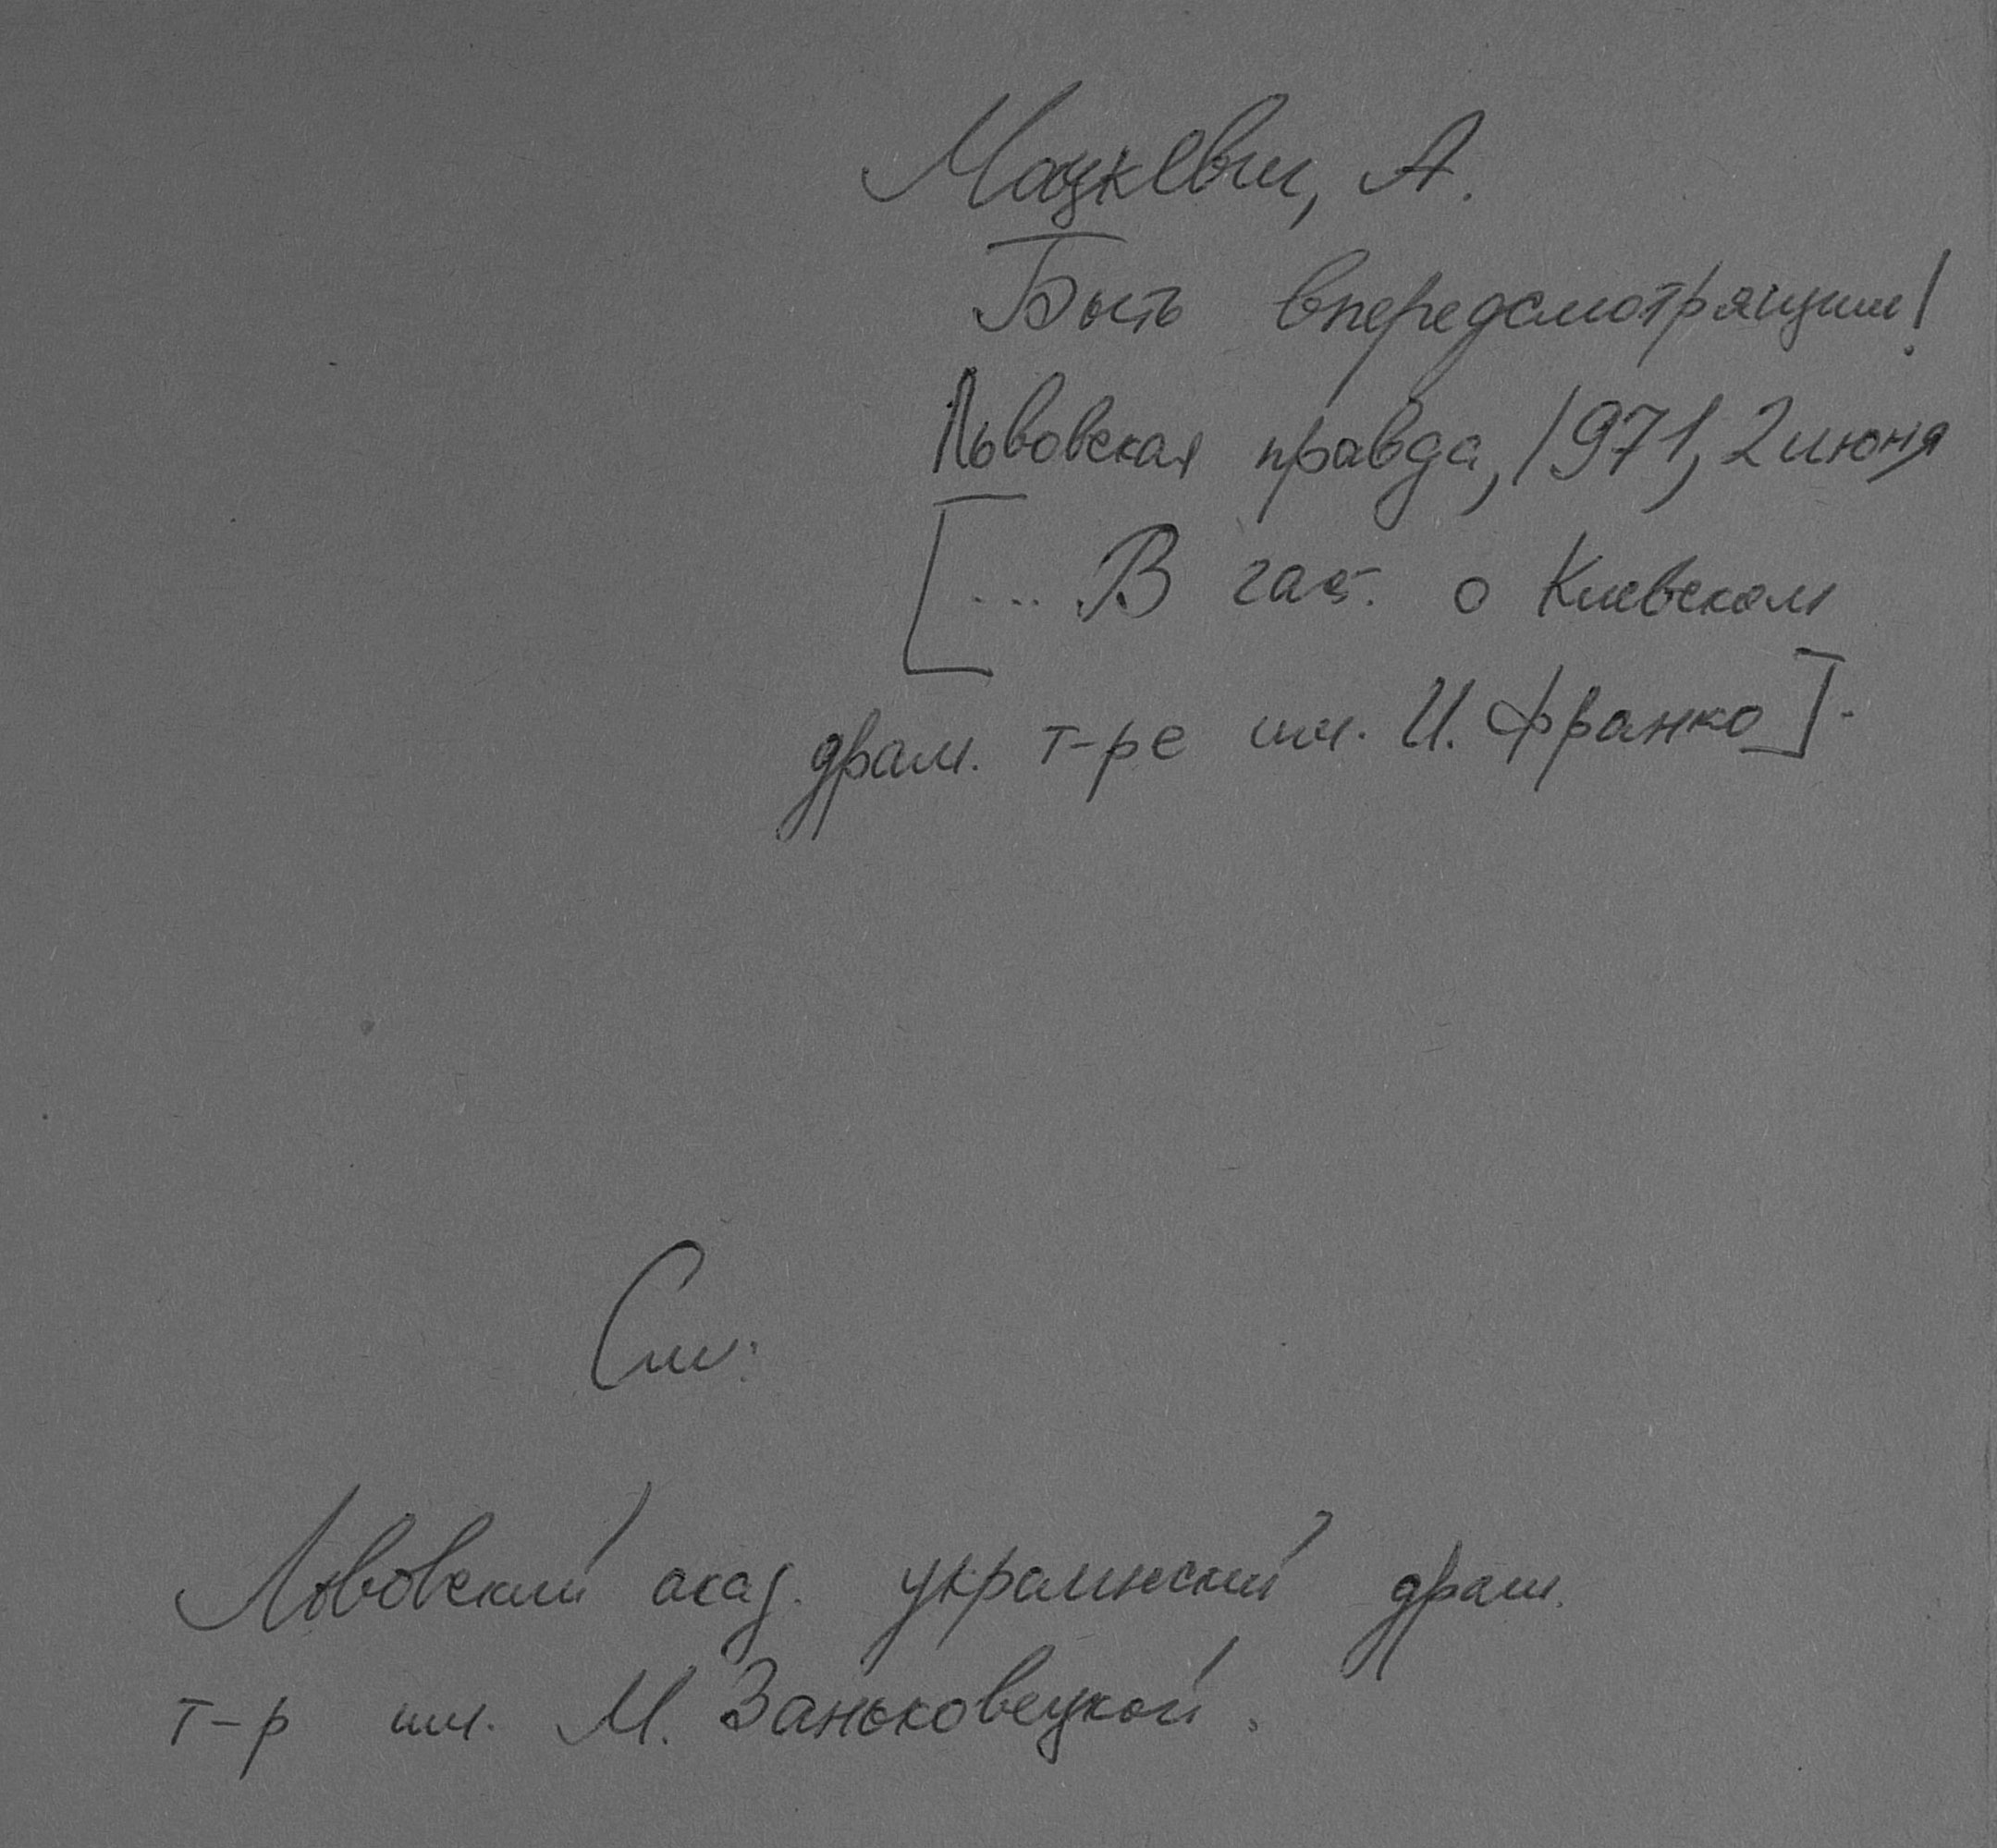 Мацкевич, А.
Быть впередсмотрящим!
Львовская правда, 1971, 2 июня
[... В час. о Киевском
драм. т-ре им. И. Франко].
См:
Львовский акад. украинский драм.
т-р им. М. Заньковецкой.